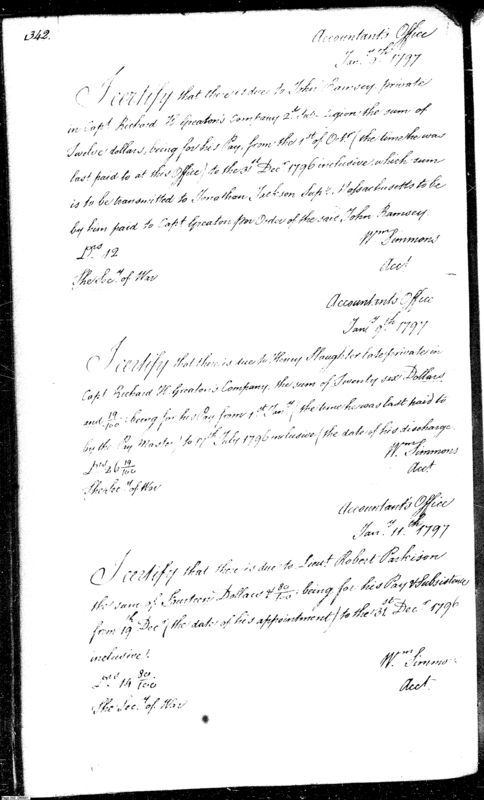 342.
Accountant's Office
Jany 9th 1797
I certify that there is due to John Ramsey private
in Capt Richard H Greaton's Company 2d Sub Legion the sum of
Twelve dollars, being for his Pay, from the 1st of Octr (the time he was
last paid to at this Office) to the 31st Decr 1796 inclusive which sum
is to be transmitted to Jonathan Jackson Supr Massachusetts to be
by him paid to Capt Greaton pr Order of the said John Ramsey.
Wm Simmons
Acct
Drs 12
The Secy of War
Accountants Office
Jany 9th 1797
I certify that there is due to Henry Slaughter late private in
Capt Richard H. Greaton's Company, the sum of Twenty six Dollars
and 19/100: being for his Pay from 1st Jany (the time he was last paid to
by the Pay Master) to 17th July 1796 inclusive (the date of his discharge.
Wm Simmons
Acct
Drs 26 19/100
The Secy of War
Accountant's Office
Jany 11th 1797
I certify that there is due to Lieut Robert Parkison
the sum of Fourteen Dollars & 80/100: being for his Pay & Subsistence
from 19th Decr (the date of his appointment) to the 31st Decr 1796
inclusive.
Wm Simmo
Acct.
Drs 14 80/100
The Secy of War